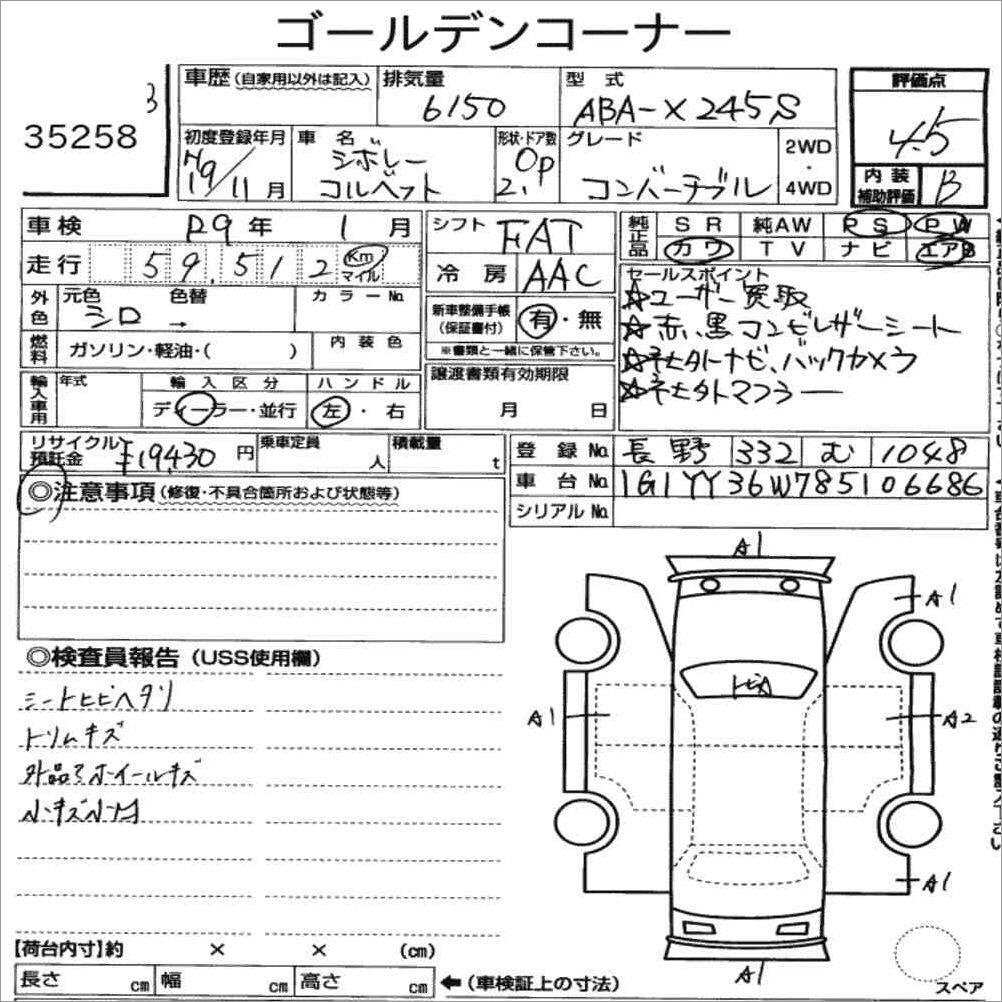 ゴールデンコーナー
35258
3
車歴(自家用以外は記入)
排気量
6150
型式
ABA-X245S
評価点
4.5
初度登録年月
H19/11月
車名
シボレー
コルベット
形状・ドア数
OP
2.
グレード
コンバーチブル
2WD
・
4WD
内装
補助評価
B
車検
R9年 1月
シフト
FAT
純正品
SR 純AW PS PW
カワ TV ナビ エアB
走行
59,512
Km
マイル
冷房
AAC
セールスポイント
☆ユーザー買取
☆赤、黒コンビレザーシート
☆社外ナビ、バックカメラ
☆社外マフラー
外色
元色 色替
シロ →
カラーNo.
新車整備手帳
(保証書付)
有・無
※書類と一緒に保管下さい。
燃料
ガソリン・軽油・( )
内装色
輸入車用
年式
輸入区分
ディーラー・並行
ハンドル
左・右
譲渡書類有効期限
月 日
リサイクル
預託金
¥19,430円
乗車定員
人
積載量
t
登録No.
長野 332 む 1048
車台No.
1G1YY36W785106686
シリアルNo.
◎注意事項(修復・不具合箇所および状態等)
◎検査員報告(USS使用欄)
シートヒビヘタリ
トリムキズ
外品アホイールキズ
小キズ小凹
A1
A1
トビA
A1
A2
A1
A1
スペア
【荷台内寸】約 × × (cm)
長さ cm 幅 cm 高さ cm
←(車検証上の寸法)